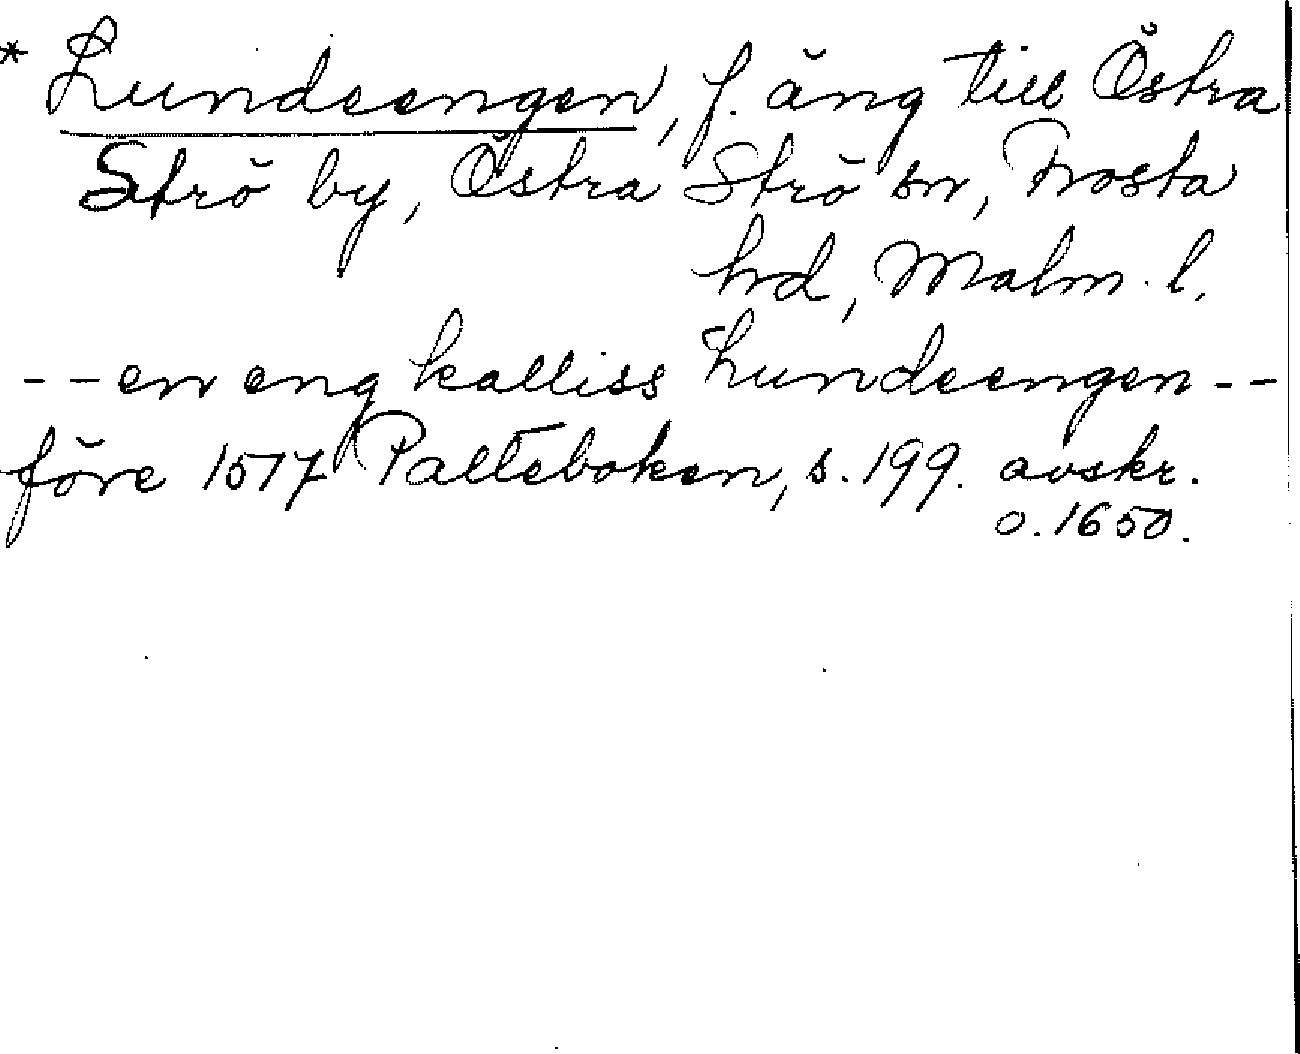 * Lundeengen, f. äng till Östra
Strö by, Östra Strö sn, Frosta
hd, Malm. l.
-- en eng kalliss Lundeengen --
före 1517 Palteboken, s. 199. avskr.
o. 1650.